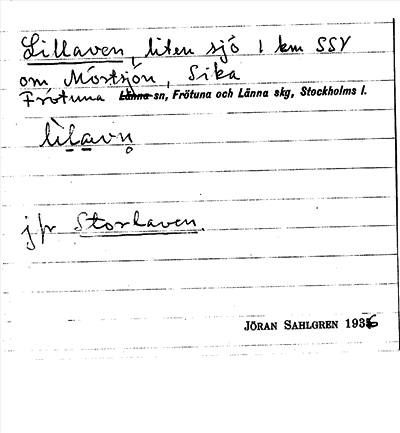 Lillaven, liten sjö 1 km SSV
om Mörtsjön, Sika
Frötuna Länna sn, Frötuna och Länna skg, Stockholms l.
lìlavn̥
jfr Storhaven.
JÖRAN SAHLGREN 1936